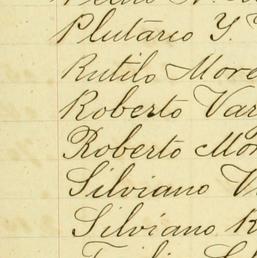 Plutarco Y.
Rutilo More
Roberto Var
Roberto Mor
Silviano V
Silviano R